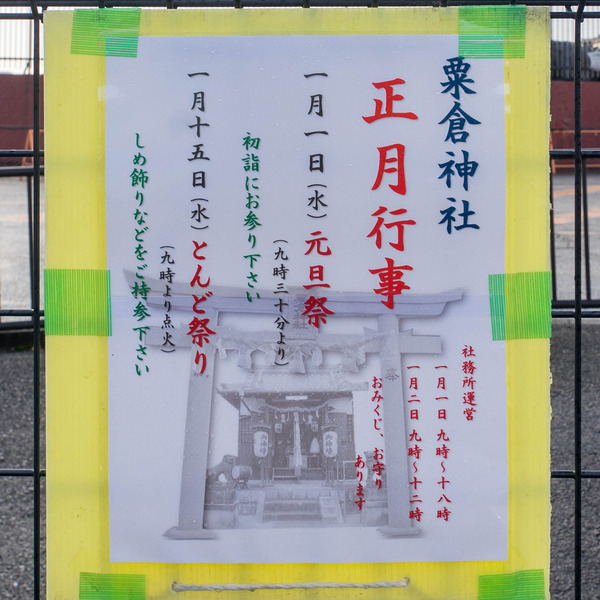 粟倉神社
正月行事
一月一日（水）元旦祭
（九時三十分より）
初詣にお参り下さい
一月十五日（水）とんど祭り
（九時より点火）
しめ飾りなどをご持参下さい
社務所運営
一月一日 九時～十八時
一月二日 九時～十二時
おみくじ、お守り
あります